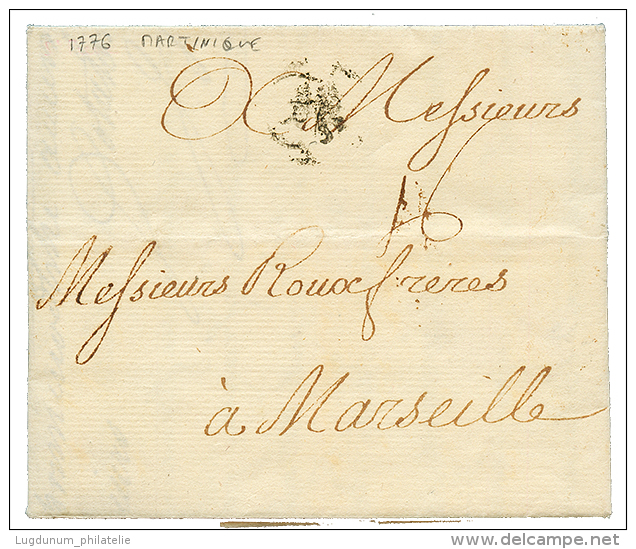 1776 MARTINIQUE
A Messieurs
16
Messieurs Roux freres
à Marseille
Lugdunum_philatelie
www.delcampe.net